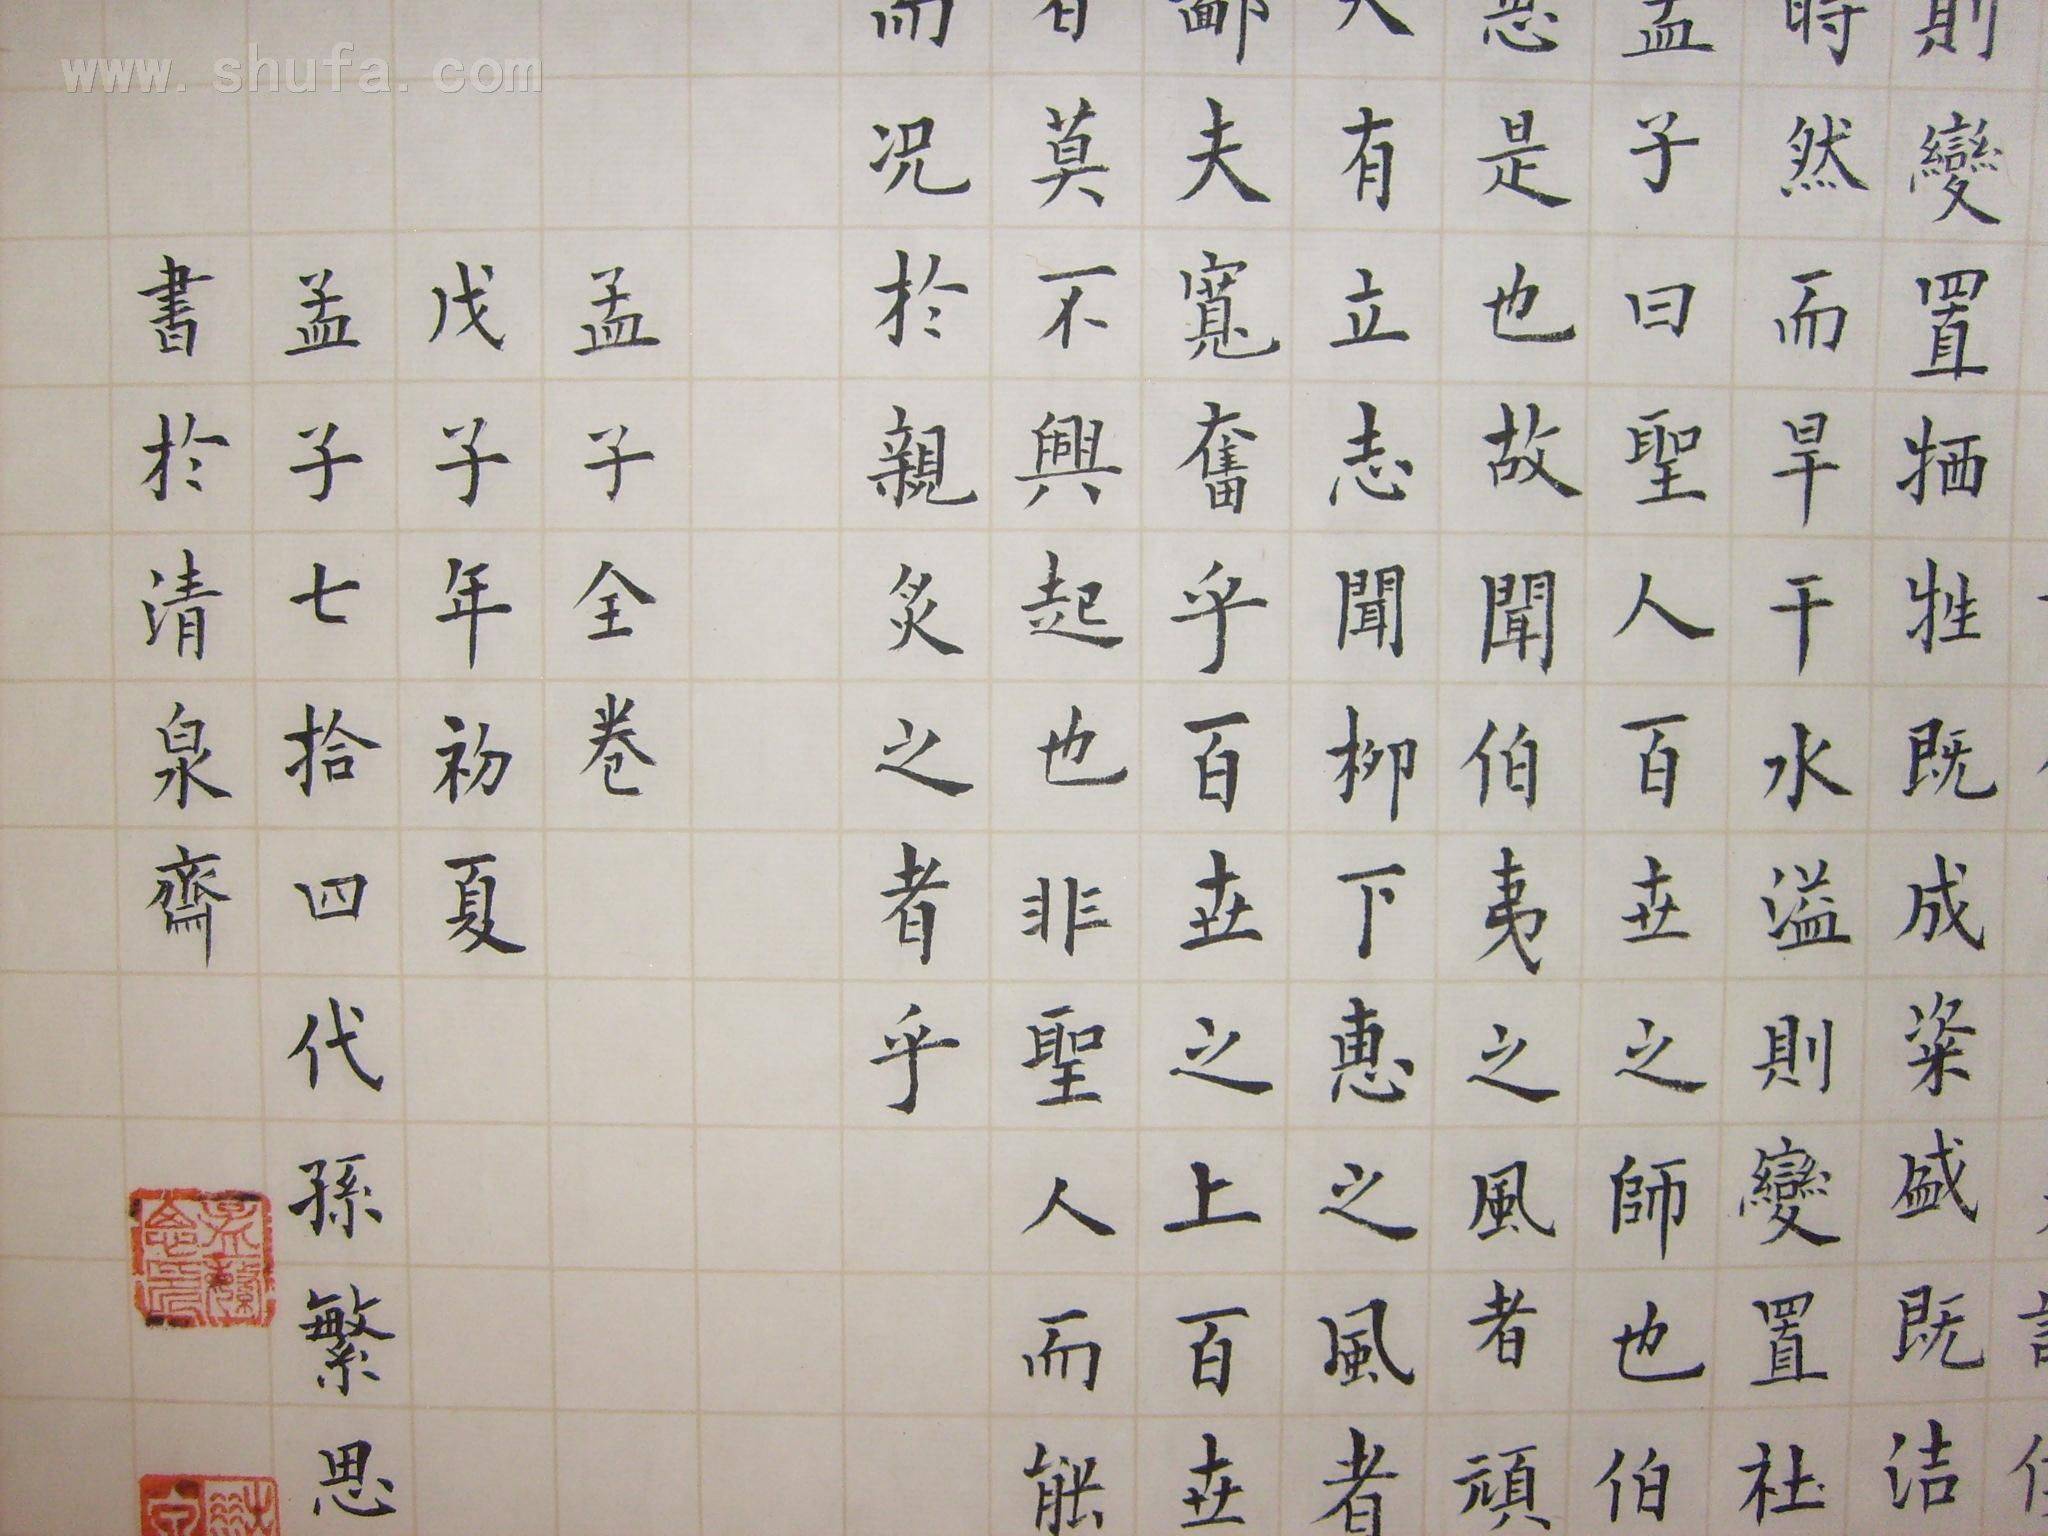 則變置牺牲既成粢盛既洁
時然而旱干水溢則變置社
孟子曰聖人百世之師也伯
惠是也故聞伯夷之風者頑
夫有立志聞柳下惠之風者
鄙夫寬奮乎百世之上百世
者莫不興起也非聖人而能
而况於親炙之者乎
孟子全卷
戊子年初夏
孟子七拾四代孫繁思
書於清泉齋
孟繁思印
www.shufa.com